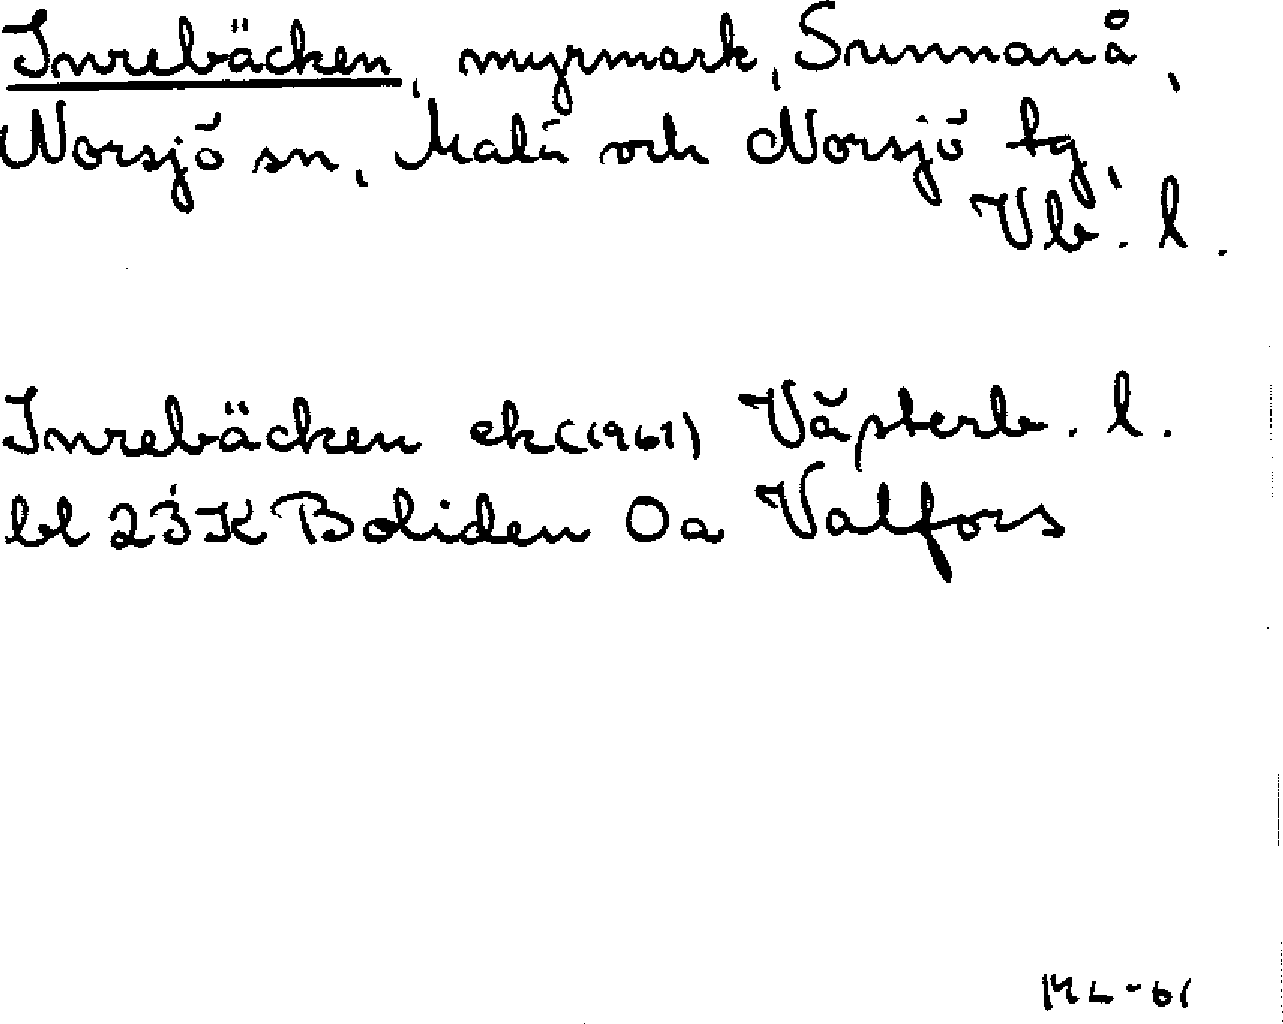 Inrebäcken, myrmark, Sunnanå,
Norsjö sn, Malå och Norsjö tg,
Vb. l.
Inrebäcken ek (1961) Västerb. l.
bl 23K Boliden 0a Valfors
ML-61